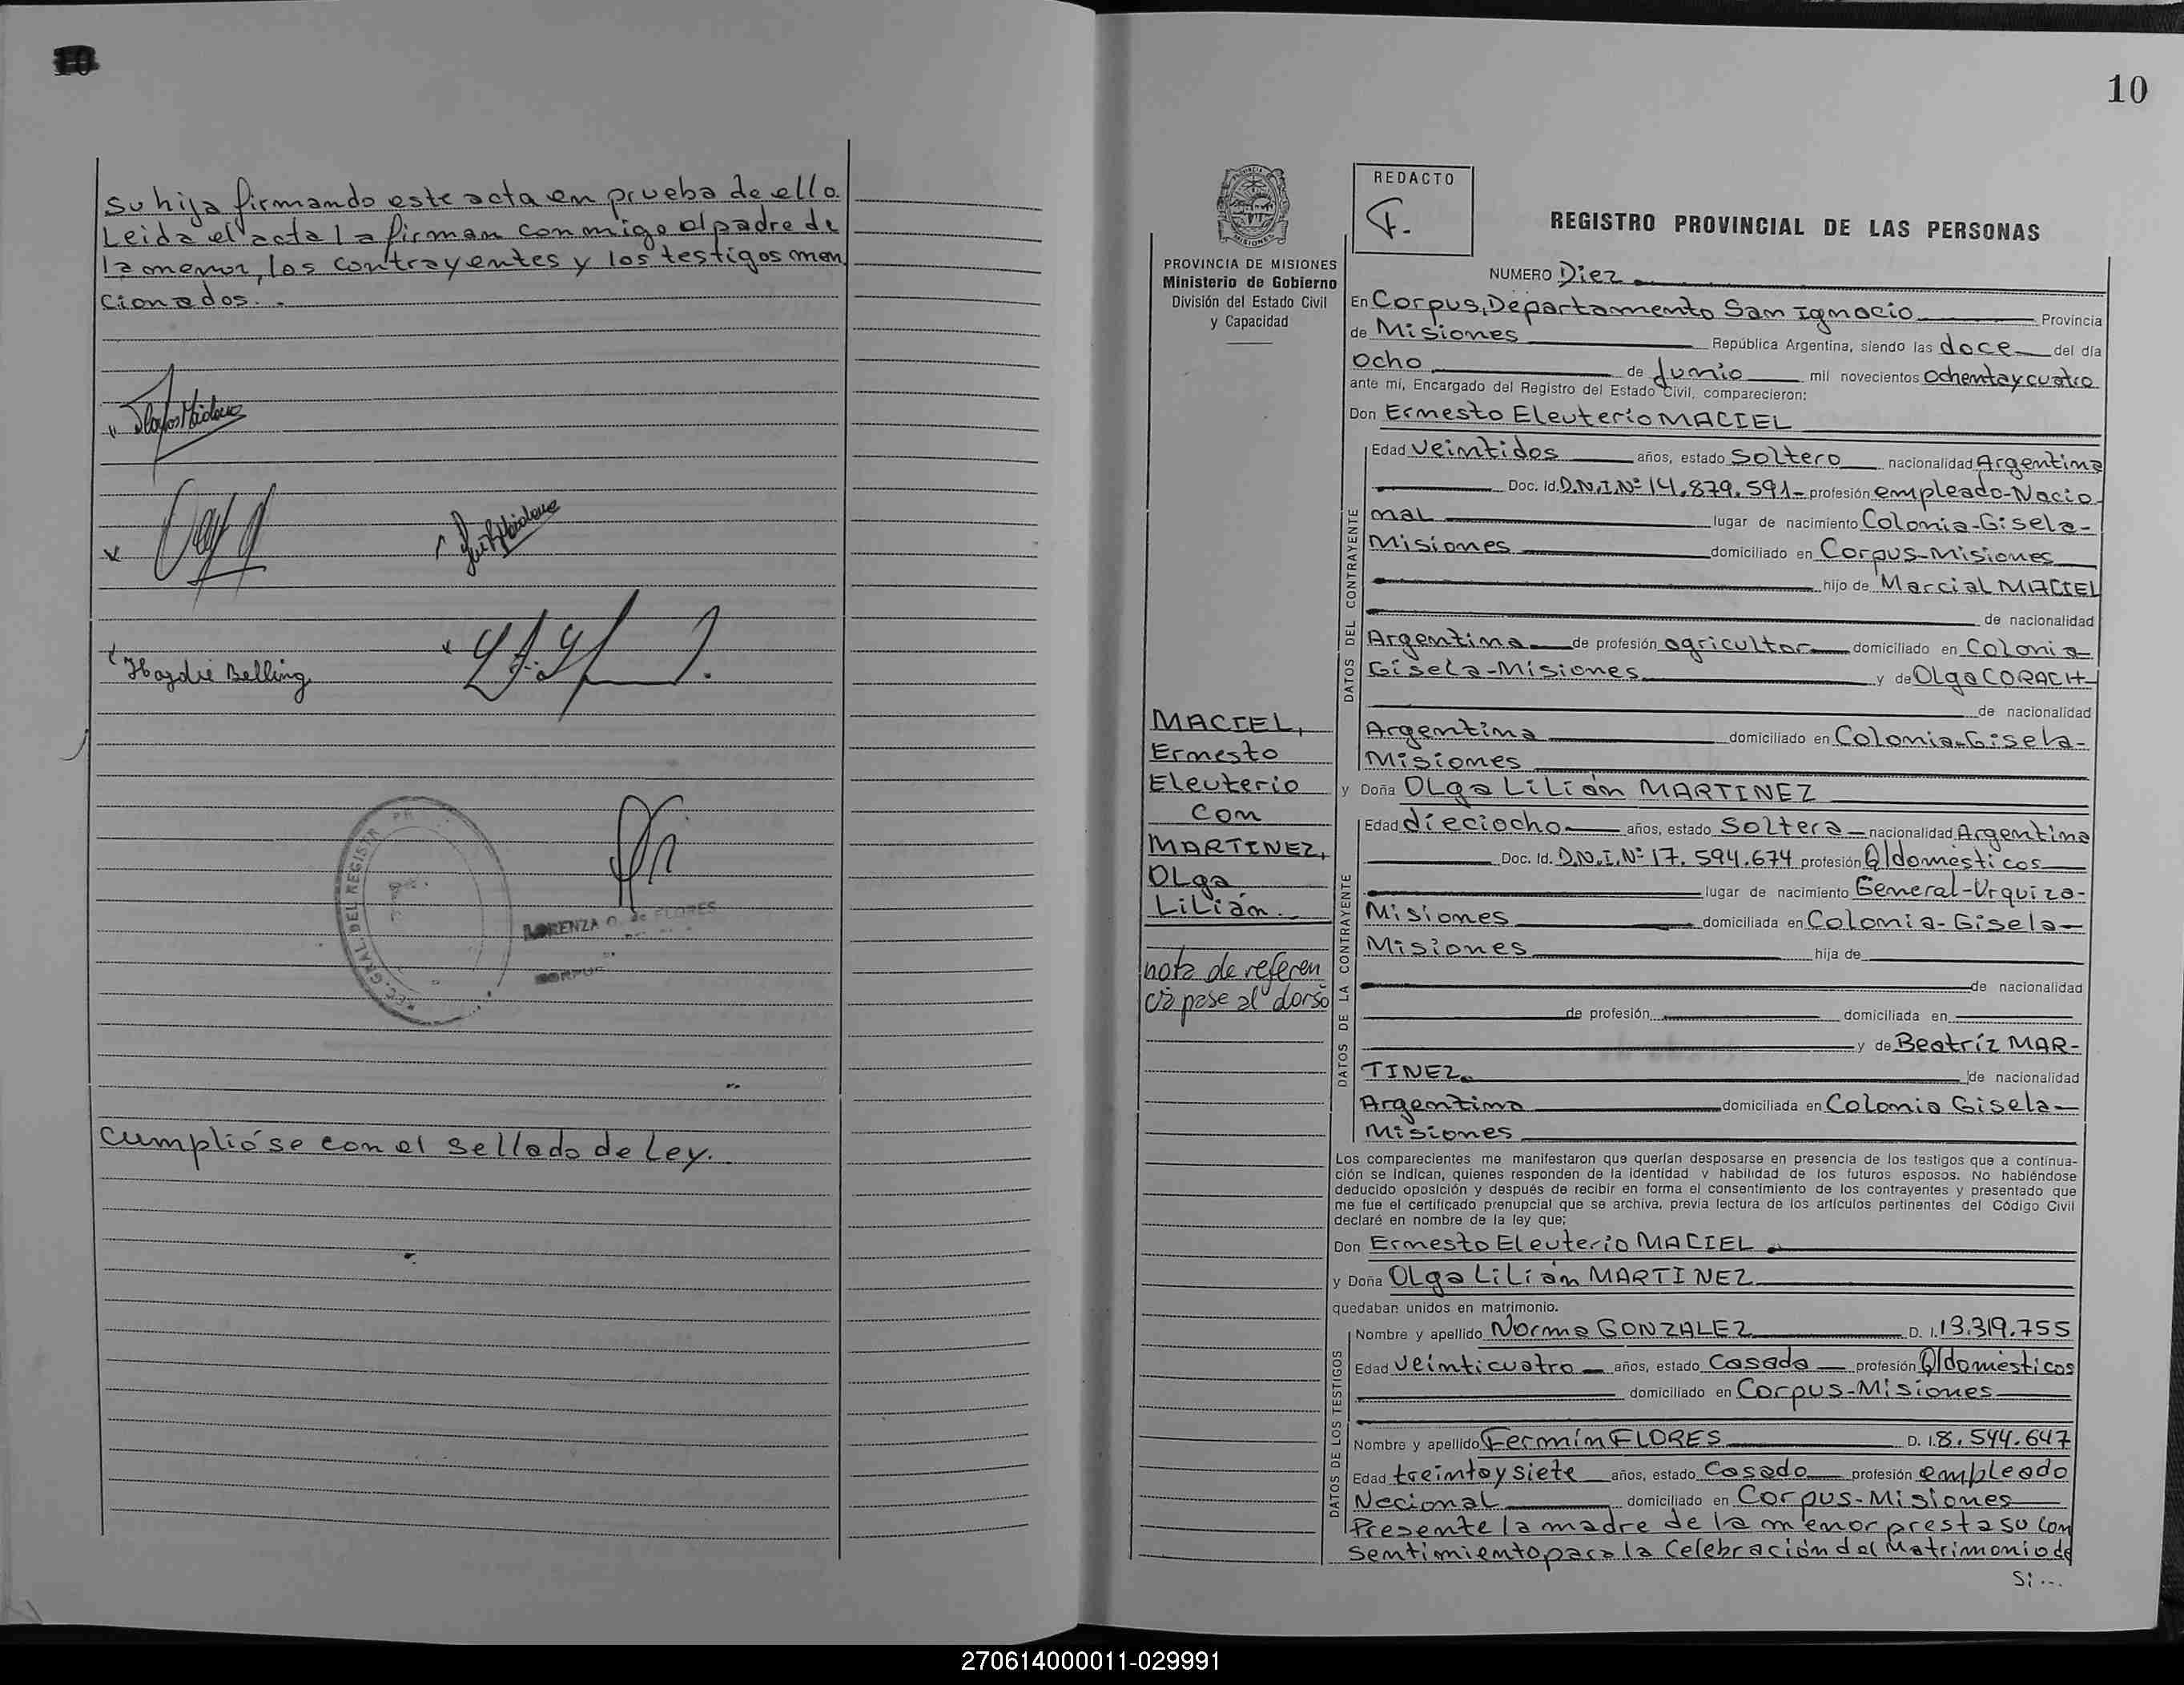 10
su hija firmando este acta en prueba de ello.
Leida el acta la firman conmigo el padre de
la menor, los contrayentes y los testigos men
cionados..
Haydée Belling
REG. GRAL. DEL REGISTR PR
LORENZA G. de FLORES
CORPUS
Cumplióse con el sellado de Ley.
10
PROVINCIA DE MISIONES
Ministerio de Gobierno
División del Estado Civil
y Capacidad
REDACTO
F.
REGISTRO PROVINCIAL DE LAS PERSONAS
NUMERO Diez
En Corpus, Departamento San Ignacio Provincia
de Misiones República Argentina, siendo las doce del día
ocho de Junio mil novecientos ochentaycuatro
ante mi, Encargado del Registro del Estado Civil, comparecieron:
Don Ernesto Eleuterio MACIEL
DATOS DEL CONTRAYENTE
Edad veintidos años, estado Soltero nacionalidad Argentina
Doc. Id. D.N.I.Nº 14.879.591- profesión empleado-Nacio
nal lugar de nacimiento Colonia-Gisela-
Misiones domiciliado en Corpus-Misiones
hijo de Marcial MACIEL
de nacionalidad
Argentina de profesión agricultor domiciliado en Colonia
Gisela-Misiones y de Olga CORACH
de nacionalidad
Argentina domiciliado en Colonia-Gisela-
Misiones
MACIEL,
Ernesto
Eleuterio
Con
MARTINEZ,
Olga
Lilián.
nota de referen
cia pase al dorso
y Doña Olga Lilián MARTINEZ
DATOS DE LA CONTRAYENTE
Edad dieciocho años, estado Soltera nacionalidad Argentina
Doc. Id. D.N.I.Nº 17.594.674 profesión Q/domésticos
lugar de nacimiento General-Urquiza-
Misiones domiciliada en Colonia-Gisela-
Misiones hija de
de nacionalidad
de profesión domiciliada en
y de Beatríz MAR-
TINEZ. de nacionalidad
Argentina domiciliada en Colonia Gisela-
Misiones
Los comparecientes me manifestaron que querían desposarse en presencia de los testigos que a continua-
ción se indican, quienes responden de la identidad y habilidad de los futuros esposos. No habiéndose
deducido oposición y después de recibir en forma el consentimiento de los contrayentes y presentado que
me fue el certificado prenupcial que se archiva, previa lectura de los artículos pertinentes del Código Civil
declaré en nombre de la ley que;
Don Ernesto Eleuterio MACIEL
y Doña Olga Lilián MARTINEZ
quedaban unidos en matrimonio.
DATOS DE LOS TESTIGOS
Nombre y apellido Norma GONZALEZ D. I. 13.319.755
Edad veinticuatro años, estado Casada profesión Q/domésticos
domiciliado en Corpus-Misiones
Nombre y apellido Fermín FLORES D. I. 8.544.647
Edad treintaysiete años, estado Casado profesión empleado
Nacional domiciliado en Corpus-Misiones
Presente la madre de la menor presta su con
sentimiento para la Celebración del Matrimonio de
Si...
270614000011-029991